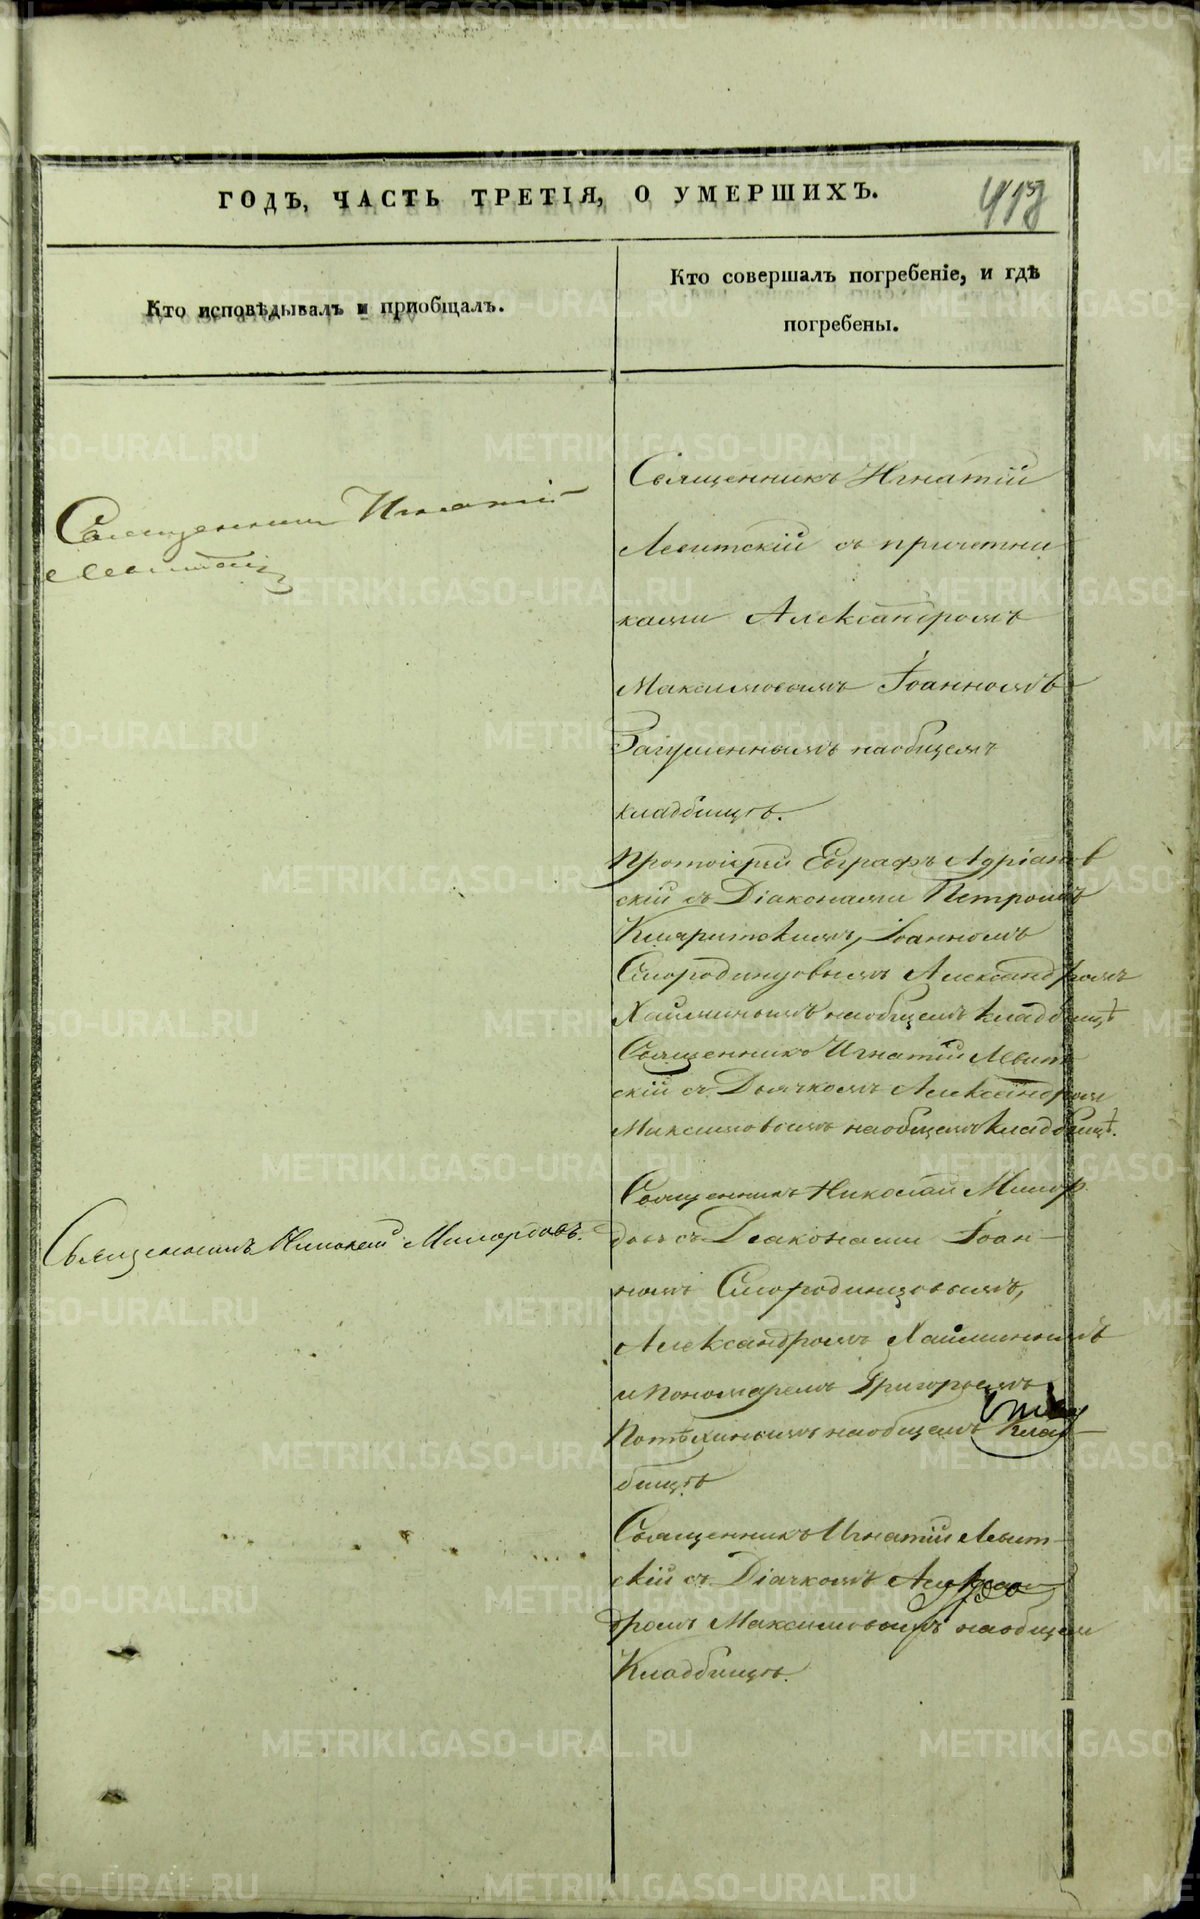 ГОДЪ, ЧАСТЬ ТРЕТІЯ, О УМЕРШИХЪ.
Кто исповѣдывалъ и пріобщалъ.
Кто совершалъ погребеніе, и гдѣ
погребены.
Священникъ Игнатій
Левитскій
Священникъ Игнатій
Левитскій съ причетни
ками Александромъ
Максимовымъ Іоанномъ
наобщемъ
кладбищѣ.
Протоіерей Евграфъ Адріанов
скій съ Діаконами Петромъ
Іоанномъ
Смородинцовымъ Александромъ
Хайминымъ наобщемъ кладбищѣ
Священникъ Игнатій Левит
скій съ Дьячкомъ Александром
Максимовымъ наобщемъ кладбищѣ.
Священникъ Николай Милор
довъ съ Діаконами Іоан-
номъ Смородинцовымъ,
Александромъ Хайминымъ
и пономаремъ Григорьемъ
Потѣхинымъ наобщемъ клад-
бищѣ
Священникъ Николай Милордовъ.
Священникъ Игнатій Левит-
скій съ Діачкомъ Алексан
дромъ Максимовымъ наобщем
Кладбищѣ.
METRIKI.GASO-URAL.RU